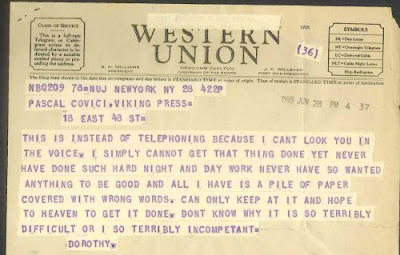 CLASS OF SERVICE
This is a full-rate Telegram or Cablegram unless its deferred character is indicated by a suitable symbol above or preceding the address.
WESTERN
UNION
(36)
SYMBOLS
DL = Day Letter
NL = Night Letter
LC = Deferred Cable
NLT = Cable Night Letter
Ship Radiogram
NEWCOMB CARLTON
CHAIRMAN OF THE BOARD
J. C. WILLEVER
FIRST VICE-PRESIDENT
PRESIDENT
NBQ209 78=NUJ NEWYORK NY 28 422P
1945 JUN 28 PM 4 37
PASCAL COVICI, VIKING PRESS=
18 EAST 48 ST=
THIS IS INSTEAD OF TELEPHONING BECAUSE I CANT LOOK YOU IN
THE VOICE. I SIMPLY CANNOT GET THAT THING DONE YET NEVER
HAVE DONE SUCH HARD NIGHT AND DAY WORK NEVER HAVE SO WANTED
ANYTHING TO BE GOOD AND ALL I HAVE IS A PILE OF PAPER
COVERED WITH WRONG WORDS. CAN ONLY KEEP AT IT AND HOPE
TO HEAVEN TO GET IT DONE. DONT KNOW WHY IT IS SO TERRIBLY
DIFFICULT OR I SO TERRIBLY INCOMPETANT=
DOROTHY.